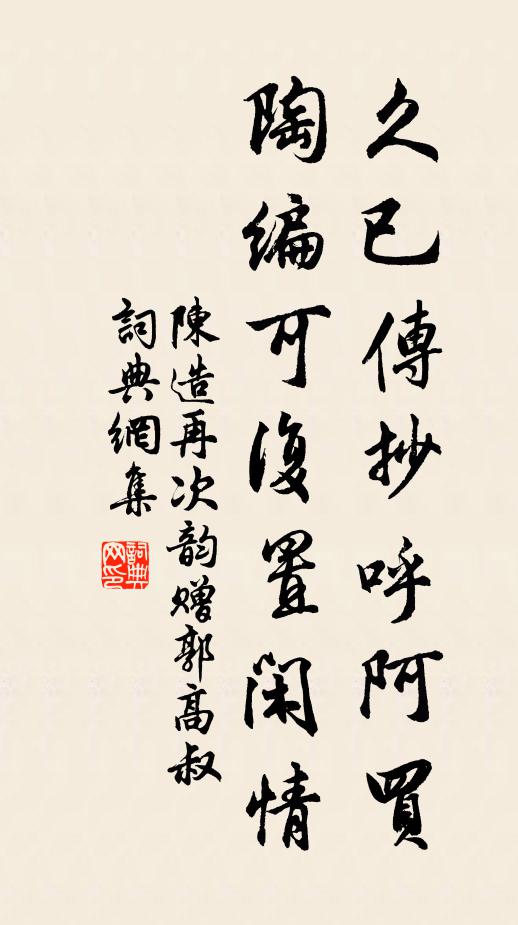 久已傳抄呼阿買
陶編可復置閑情
陳造再次韵贈郭高叔
詞典網集
詞典网印